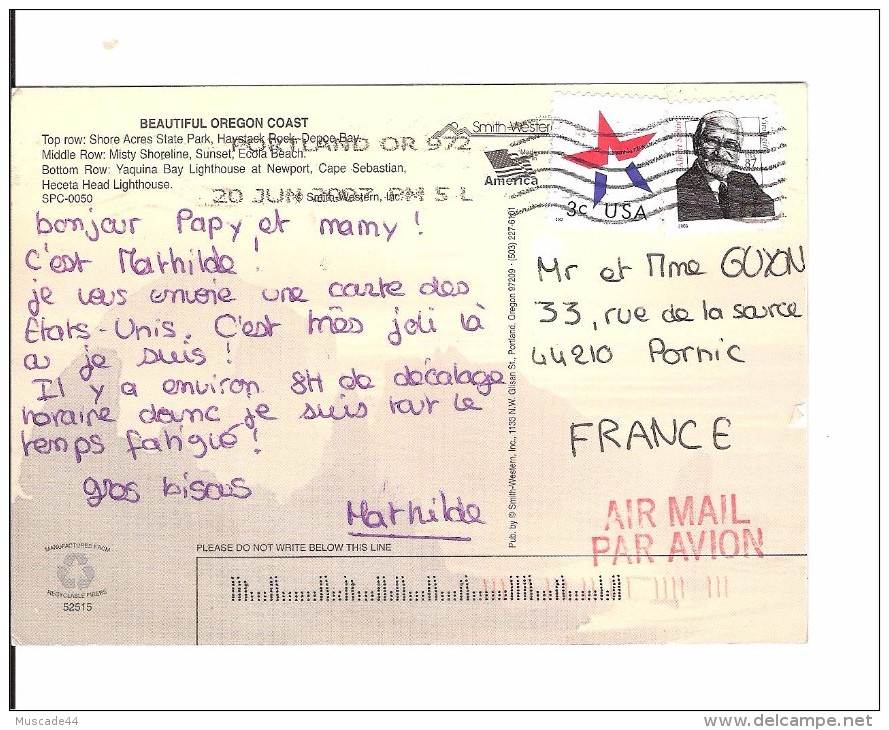 BEAUTIFUL OREGON COAST
Top row: Shore Acres State Park, Haystack Rock, Depoe Bay.
Middle Row: Misty Shoreline, Sunset, Ecola Beach.
Bottom Row: Yaquina Bay Lighthouse at Newport, Cape Sebastian,
Heceta Head Lighthouse.
SPC-0050
Smith-Western, Inc.
PORTLAND OR 972
20 JUN 2007 PM 5 L
Smith-Western
America
3c USA
37
bonjour Papy et mamy !
C'est Mathilde !
je vous envoie une carte des
Etats-Unis. C'est très joli là
ou je suis !
Il y a environ 8H de décalage
horaire donc je suis tout le
temps fatigué !
gros bisous
Mathilde
Pub. by © Smith-Western, Inc., 1133 N.W. Glisan St., Portland, Oregon 97209 · (503) 227-6101
Mr et Mme GUYON
33, rue de la source
44210 Pornic
FRANCE
AIR MAIL
PAR AVION
MANUFACTURED FROM
RECYCLABLE FIBERS
52515
PLEASE DO NOT WRITE BELOW THIS LINE
Muscade44
delcampe.net